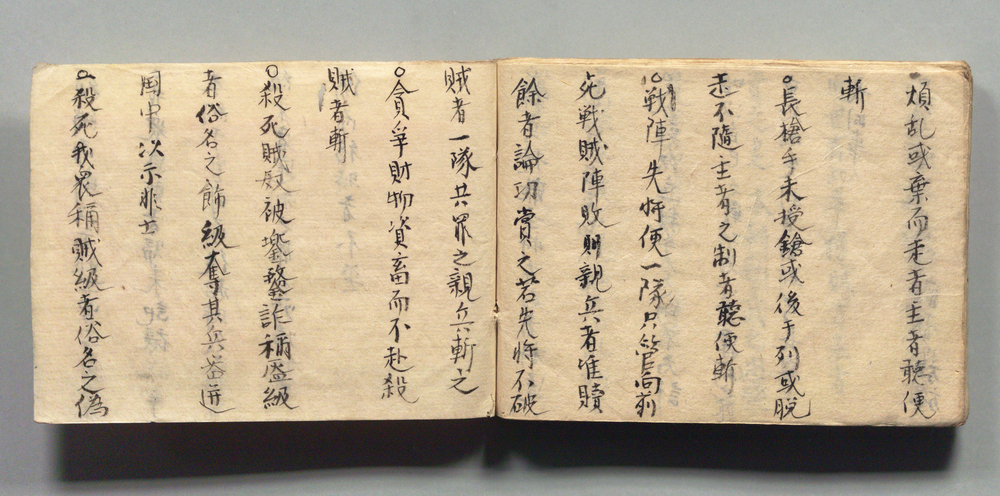 煩乱或棄而走者主者聴便
斬
○長槍手未授鎗或後于列或脱
走不隨主者之制者聴便斬
○戦陣失将便一隊只管向前
死戦賊陣敗則親兵者准贖
餘者論功賞之若先将不破
賊者一隊共罪之親兵斬之
○貪争財物資畜而不赴殺
賊者斬
○殺死賊奴被鏖詐稱盛級
者俗名之飾級奪其兵器并
国中以示非士
○殺死我畏稱賊級者俗名之偽